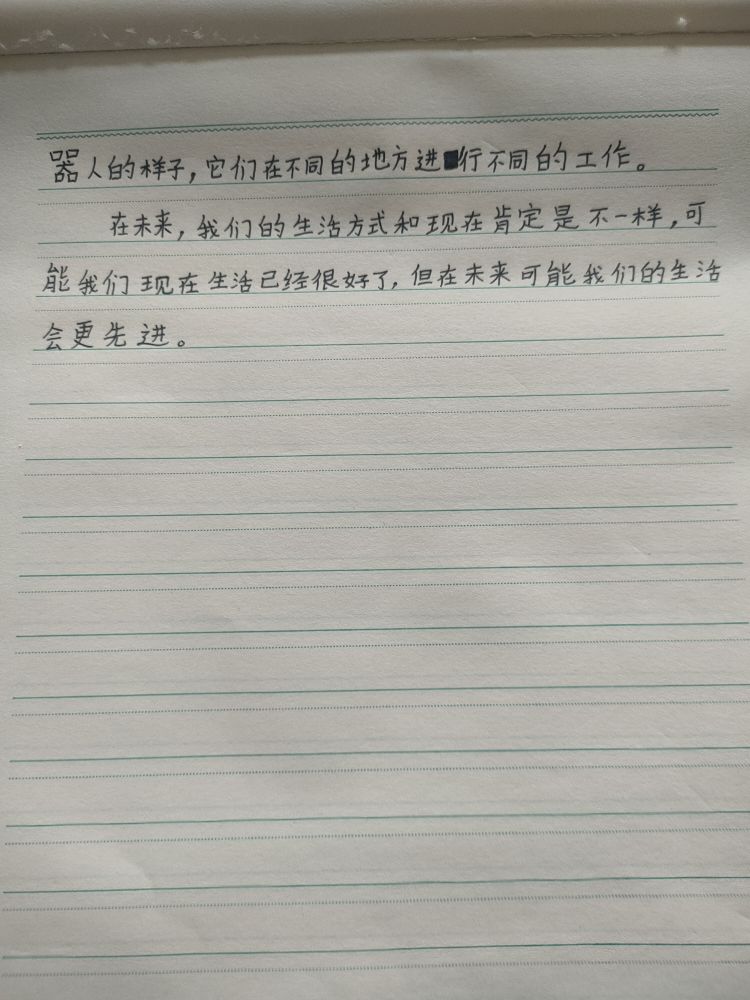 器人的样子，它们在不同的地方进行不同的工作。
在未来，我们的生活方式和现在肯定是不一样，可
能我们现在生活已经很好了，但在未来可能我们的生活
会更先进。